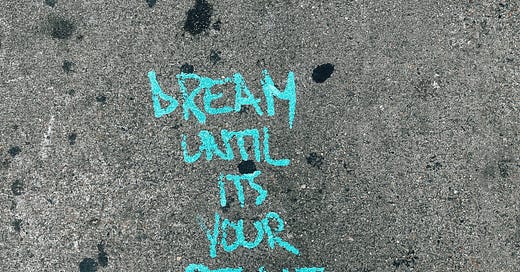 DREAM
UNTIL
ITS
YOUR